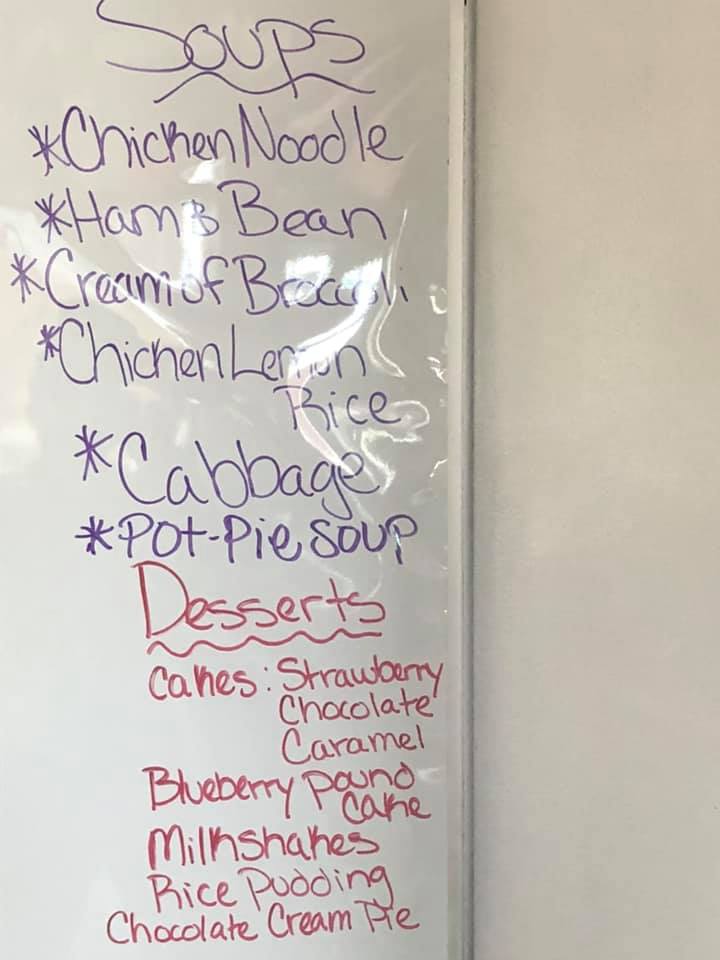 Soups
*Chicken Noodle
*Ham & Bean
*Cream of Broccoli
*Chicken Lemon
Rice
*Cabbage
*Pot-Pie Soup
Desserts
Cakes: Strawberry
Chocolate
Caramel
Blueberry Pound
Cake
Milkshakes
Rice Pudding
Chocolate Cream Pie